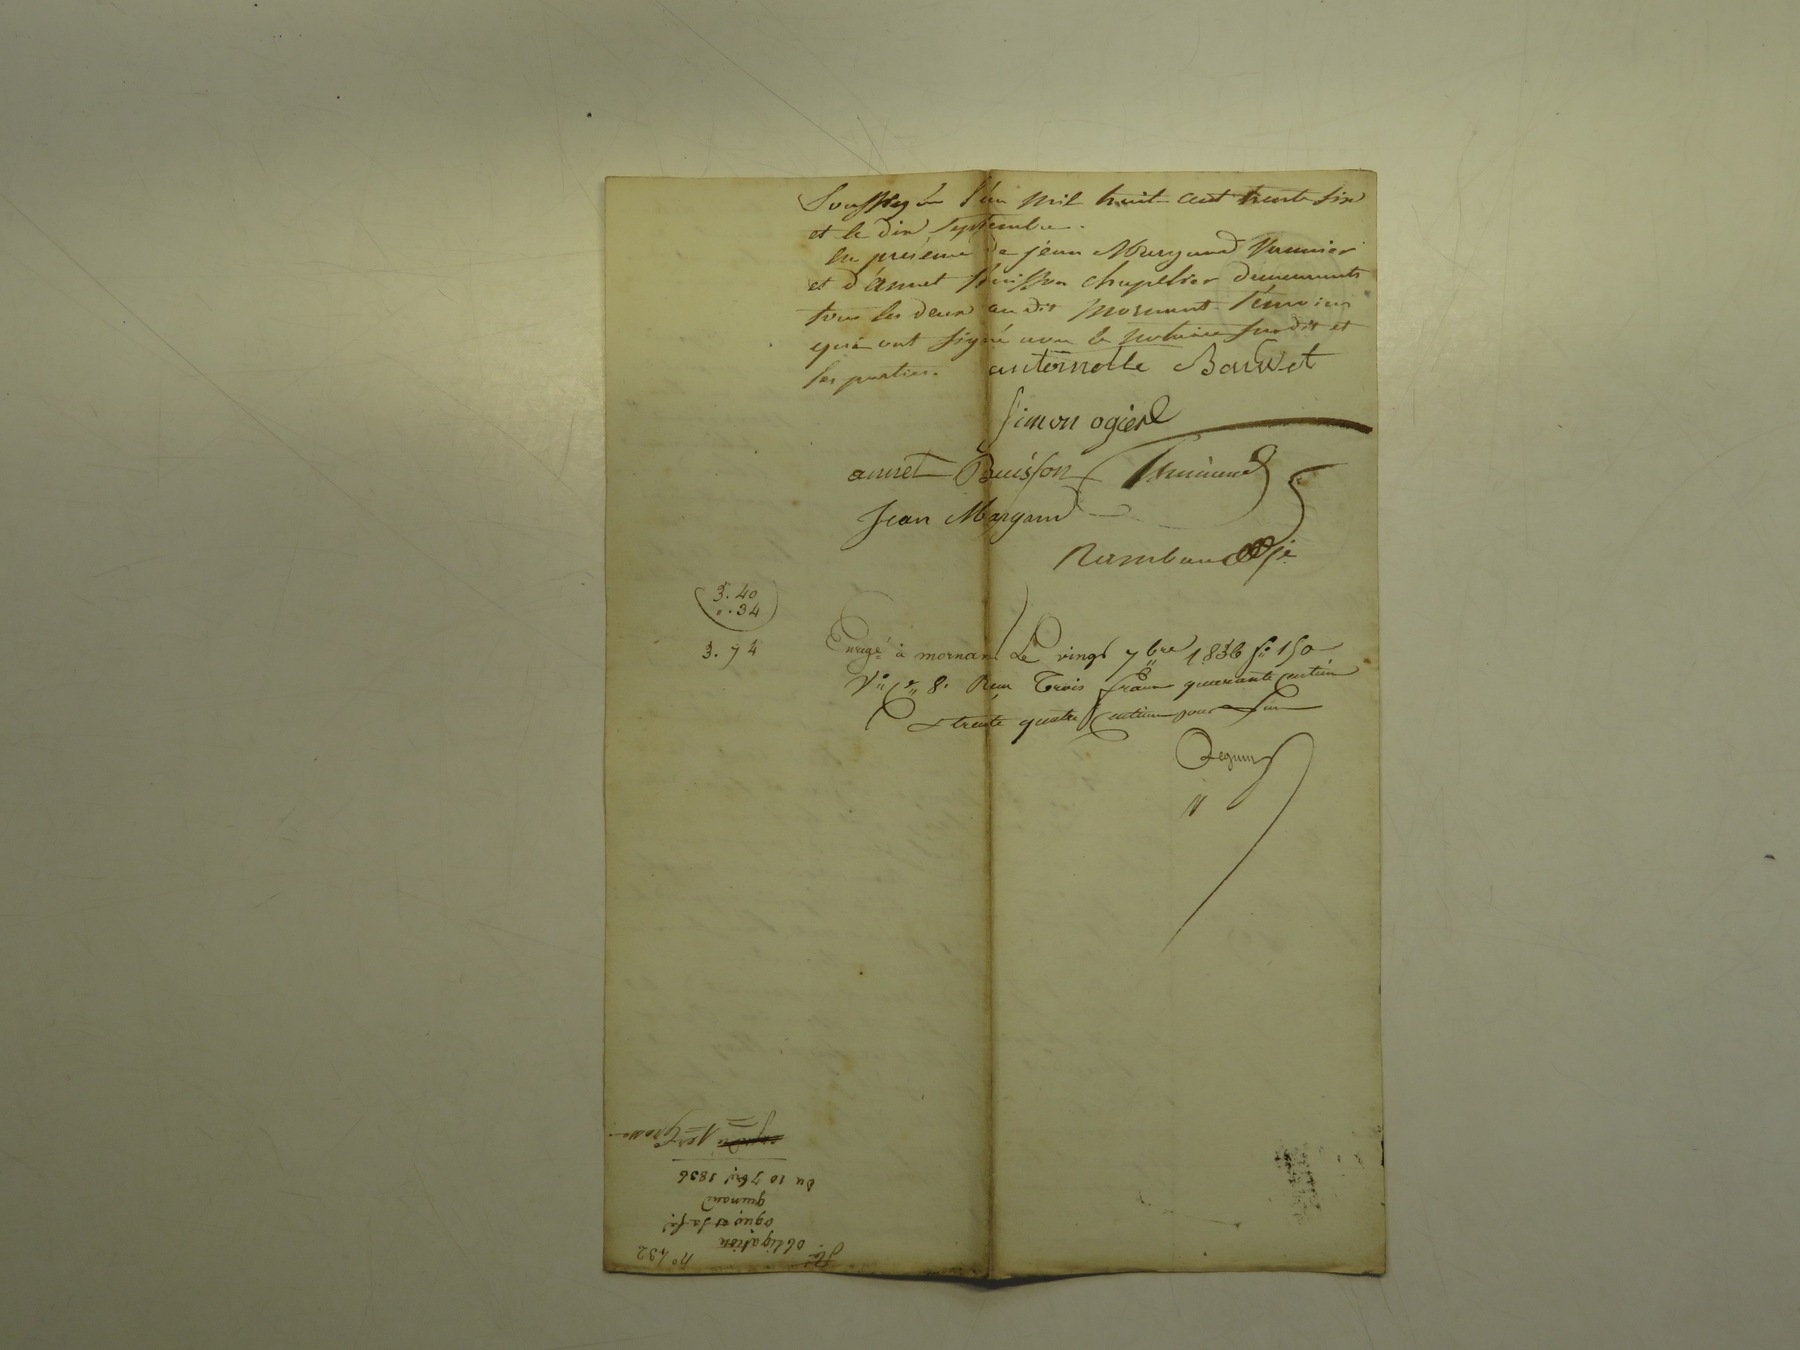 Soussigné l'an mil huit cent trente six
et le dix Septembre.
En présence de jean Margand
et d'annet Buisson chapelier demeurants
tous les deux au dit mornant témoins
qui ont signé avec le notaire susdit et
les parties. antoinette
Simon ogier
annet Buisson
Jean Margand
3. 40
". 34
3. 74
Enregé à mornant Le vingt 7bre 1836 fo 150
Vo Ce 8. Reçu Trois francs quarante centimes
& trente quatre Centimes pour
n° 432
obligation
ogier et sa fe
guinand
du 10 7bre 1836